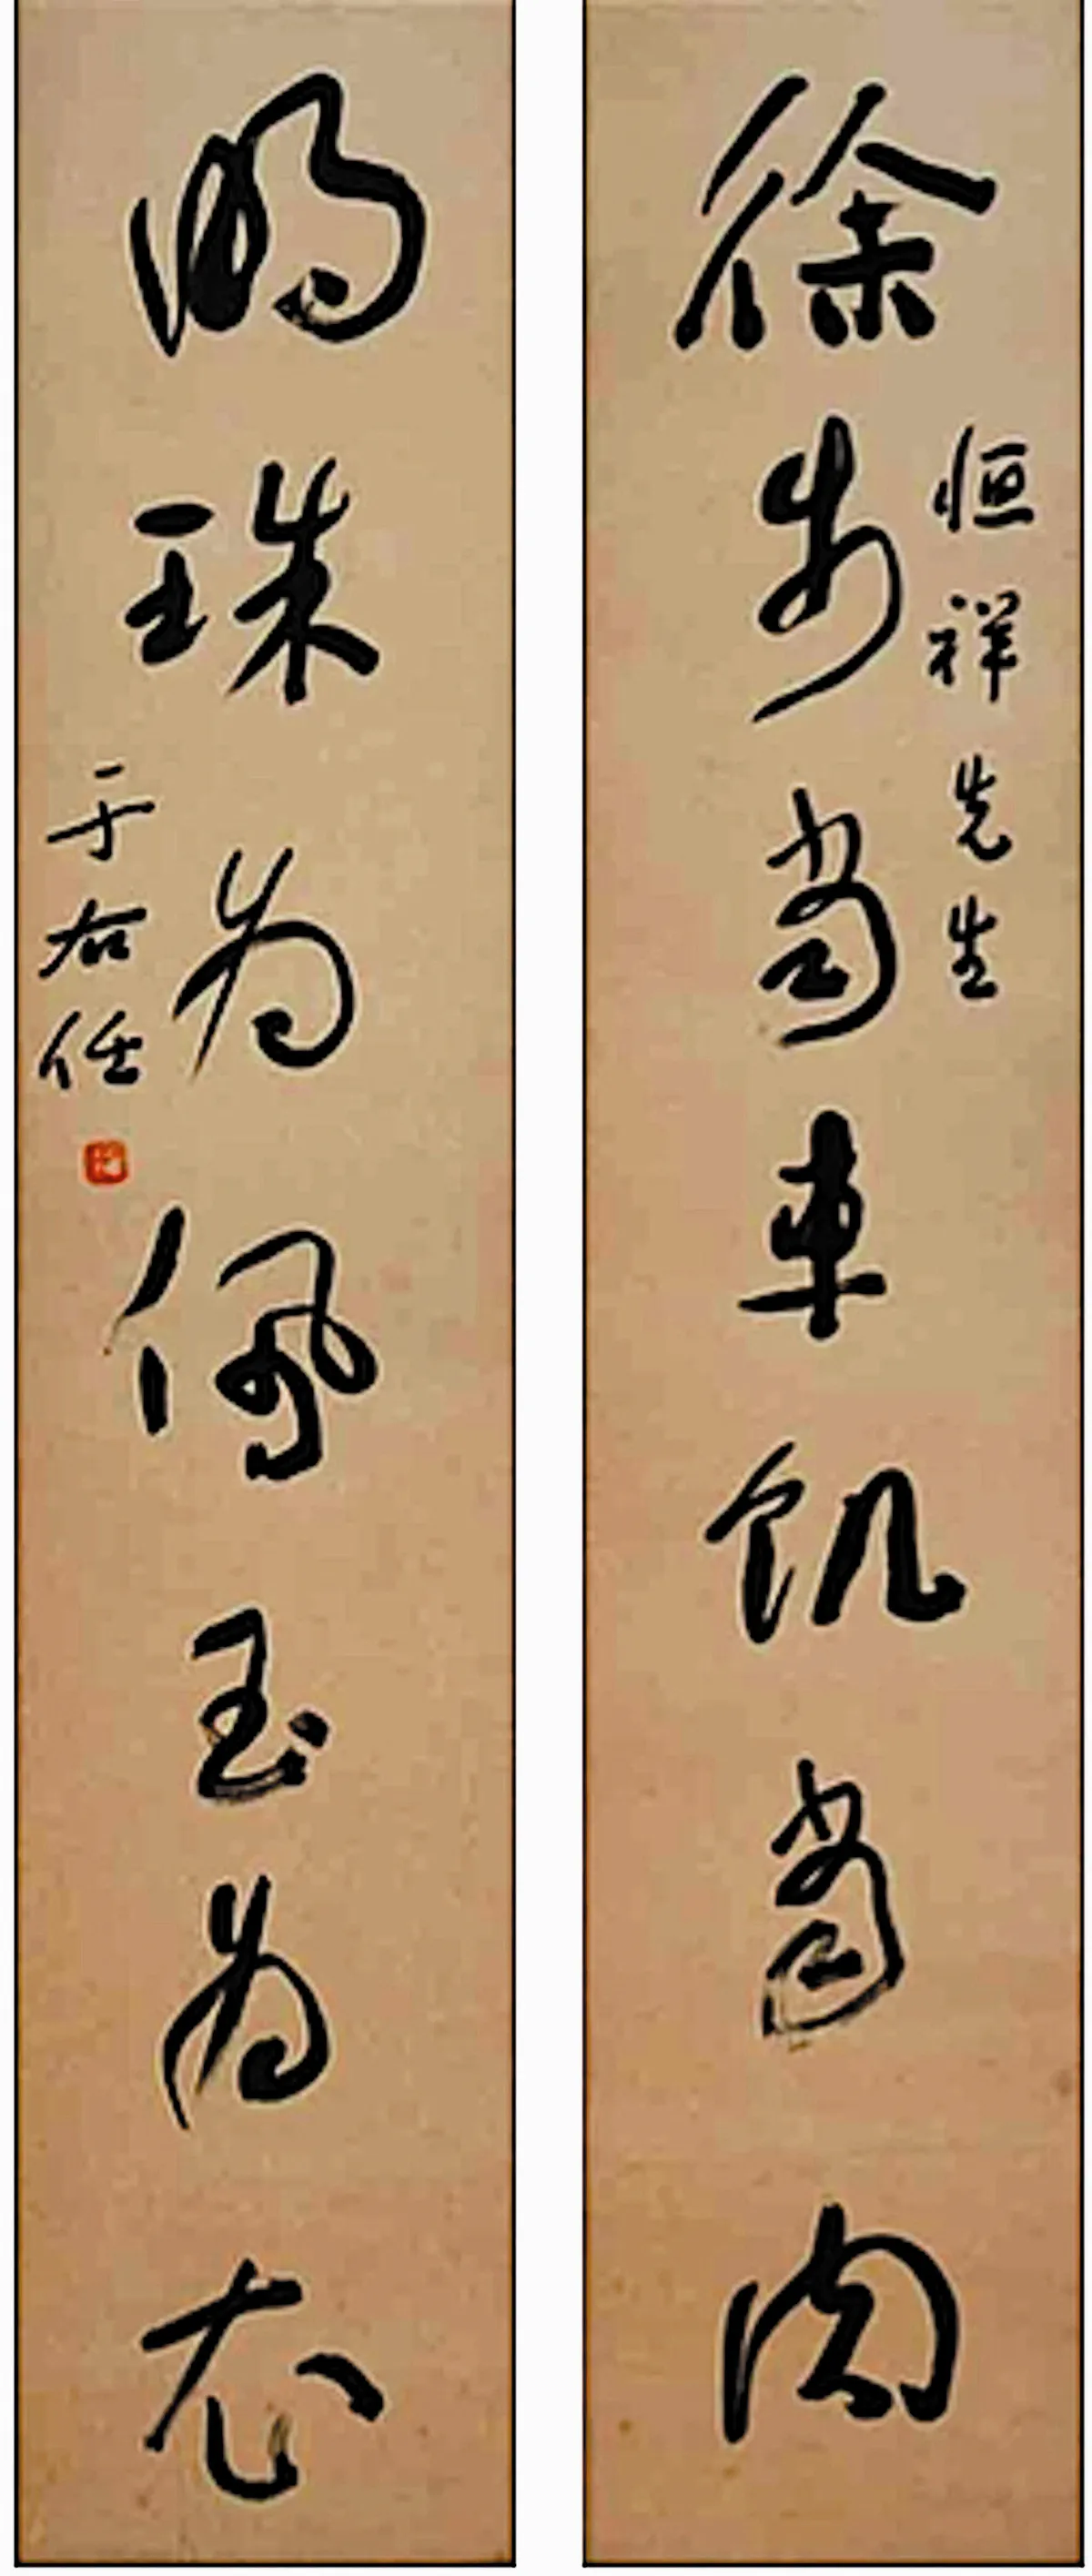 徐步當車飢當肉
恒祥先生
明珠為佩玉為衣
于右任